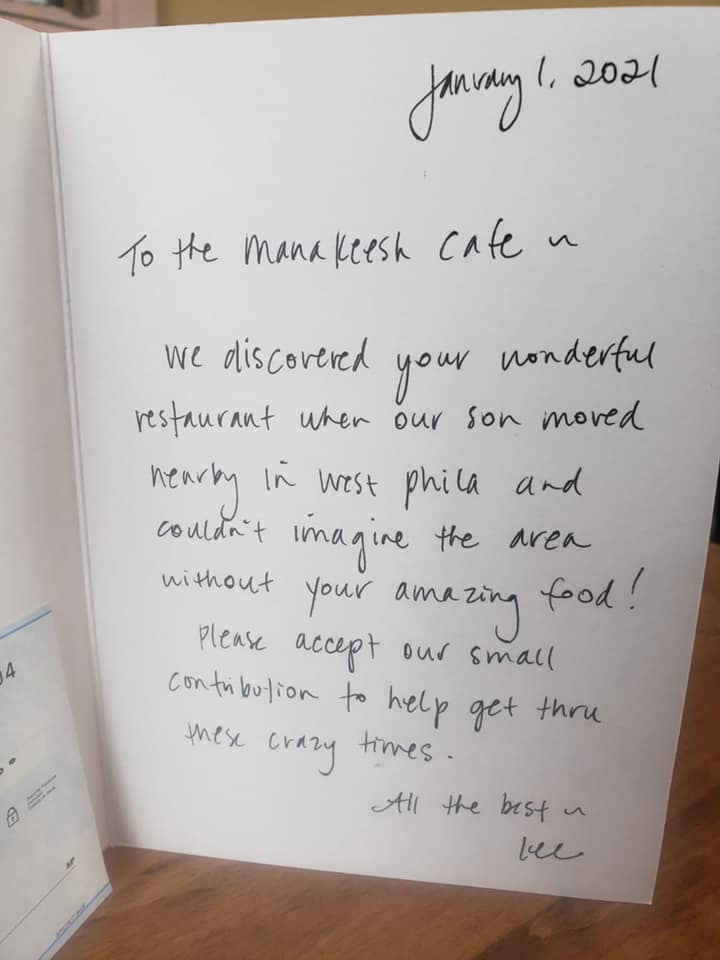 January 1, 2021
To the Manakeesh Cafe ~
We discovered your wonderful
restaurant when our son moved
nearby in West Phila and
couldn't imagine the area
without your amazing food!
Please accept our small
contribution to help get thru
these crazy times.
All the best ~
Lee
04
MP